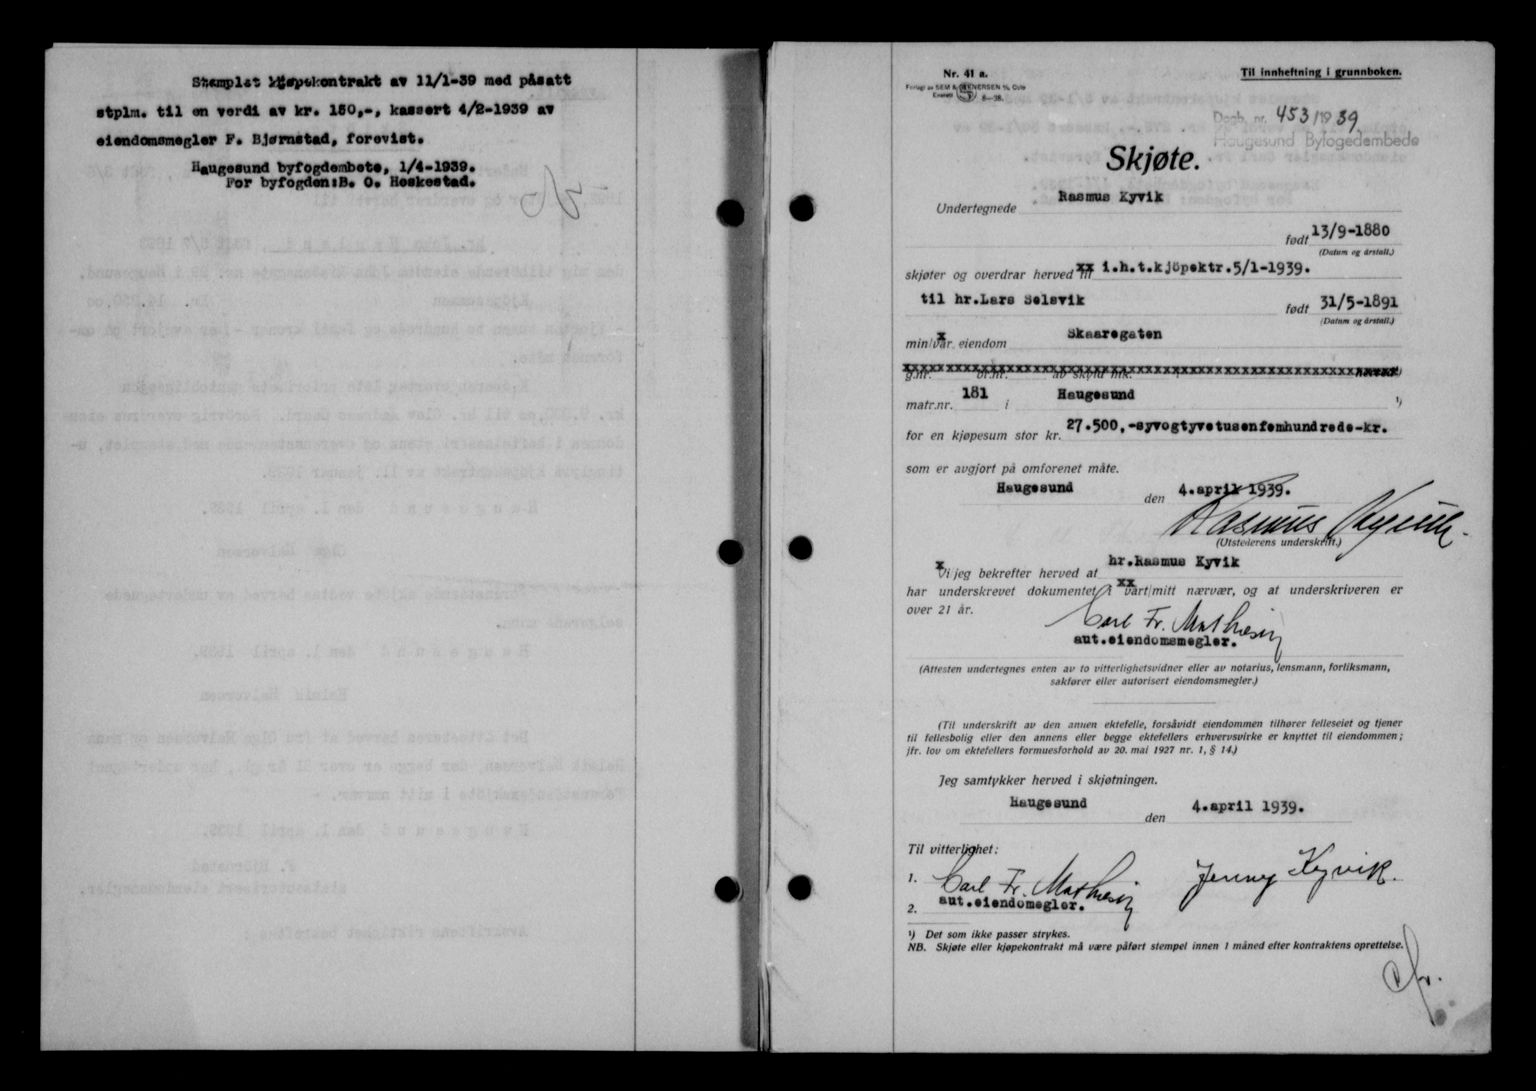 Stemplet kjøpekontrakt av 11/1-39 med påsatt
stplm. til en verdi av kr. 150,-, kassert 4/2-1939 av
eiendomsmegler F. Bjørnstad, forevist.
Haugesund byfogdembete, 1/4-1939.
For byfogden: B. O. Heskestad.
Nr. 41 a.
Til innheftning i grunnboken.
Dagb. nr. 453/1939,
Haugesund Byfogdembede
Skjøte.
Undertegnede Rasmus Kyvik
født 13/9-1880
(Datum og årstall.)
skjøter og overdrar herved til i.h.t.kjöpektr.5/1-1939.
til hr.Lars Selsvik født 31/5-1891
(Datum og årstall.)
min/vår eiendom Skaaregaten
g.nr. br.nr. av skyld mk.
matr.nr. 181 i Haugesund ¹)
for en kjøpesum stor kr. 27.500,-syvogtyvetusenfemhundrede-kr.
som er avgjort på omforenet måte.
Haugesund den 4.april 1939.
Rasmus Kyvik.
(Utstederens underskrift.)
Vi/jeg bekrefter herved at hr.Rasmus Kyvik
har underskrevet dokumentet i vårt/mitt nærvær, og at underskriveren er
over 21 år.
Carl Fr. Mathiesen
aut.eiendomsmegler.
(Attesten undertegnes enten av to vitterlighetsvidner eller av notarius, lensmann, forliksmann,
sakfører eller autorisert eiendomsmegler.)
(Til underskrift av den annen ektefelle, forsåvidt eiendommen tilhører felleseiet og tjener
til fellesbolig eller den annens eller begge ektefellers erhvervsvirke er knyttet til eiendommen;
jfr. lov om ektefellers formuesforhold av 20. mai 1927 nr. 1, § 14.)
Jeg samtykker herved i skjøtningen.
Haugesund den 4.april 1939.
Til vitterlighet:
1. Carl Fr. Mathiesen Jenny Kyvik.
2. aut.eiendomsmegler.
¹) Det som ikke passer strykes.
NB. Skjøte eller kjøpekontrakt må være påført stempel innen 1 måned efter kontraktens oprettelse.